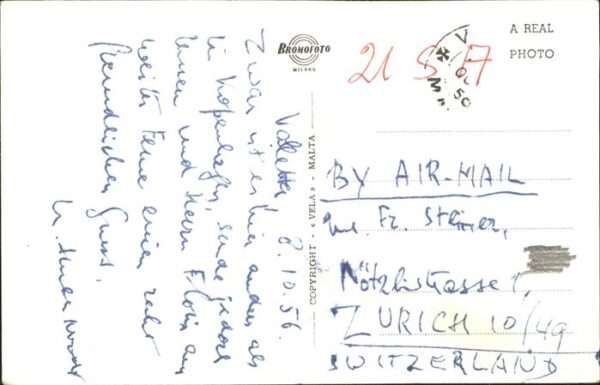 Valletta 8.10.56.
Zwar ist es hier anders als
in Kopenhagen, sende jedoch
Ihnen und Herrn
weiter Ferne einen recht
freundlichen Gruss.
BROMOFOTO
MILANO
COPYRIGHT - « VELA » - MALTA
A REAL
PHOTO
21 S 17
BY AIR-MAIL
Fr. Steiner,
Nötzlistrasse 1,
ZURICH 10/49
SWITZERLAND